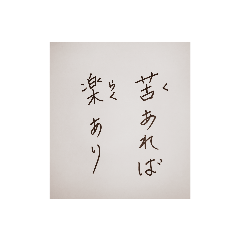 苦あれば
楽あり